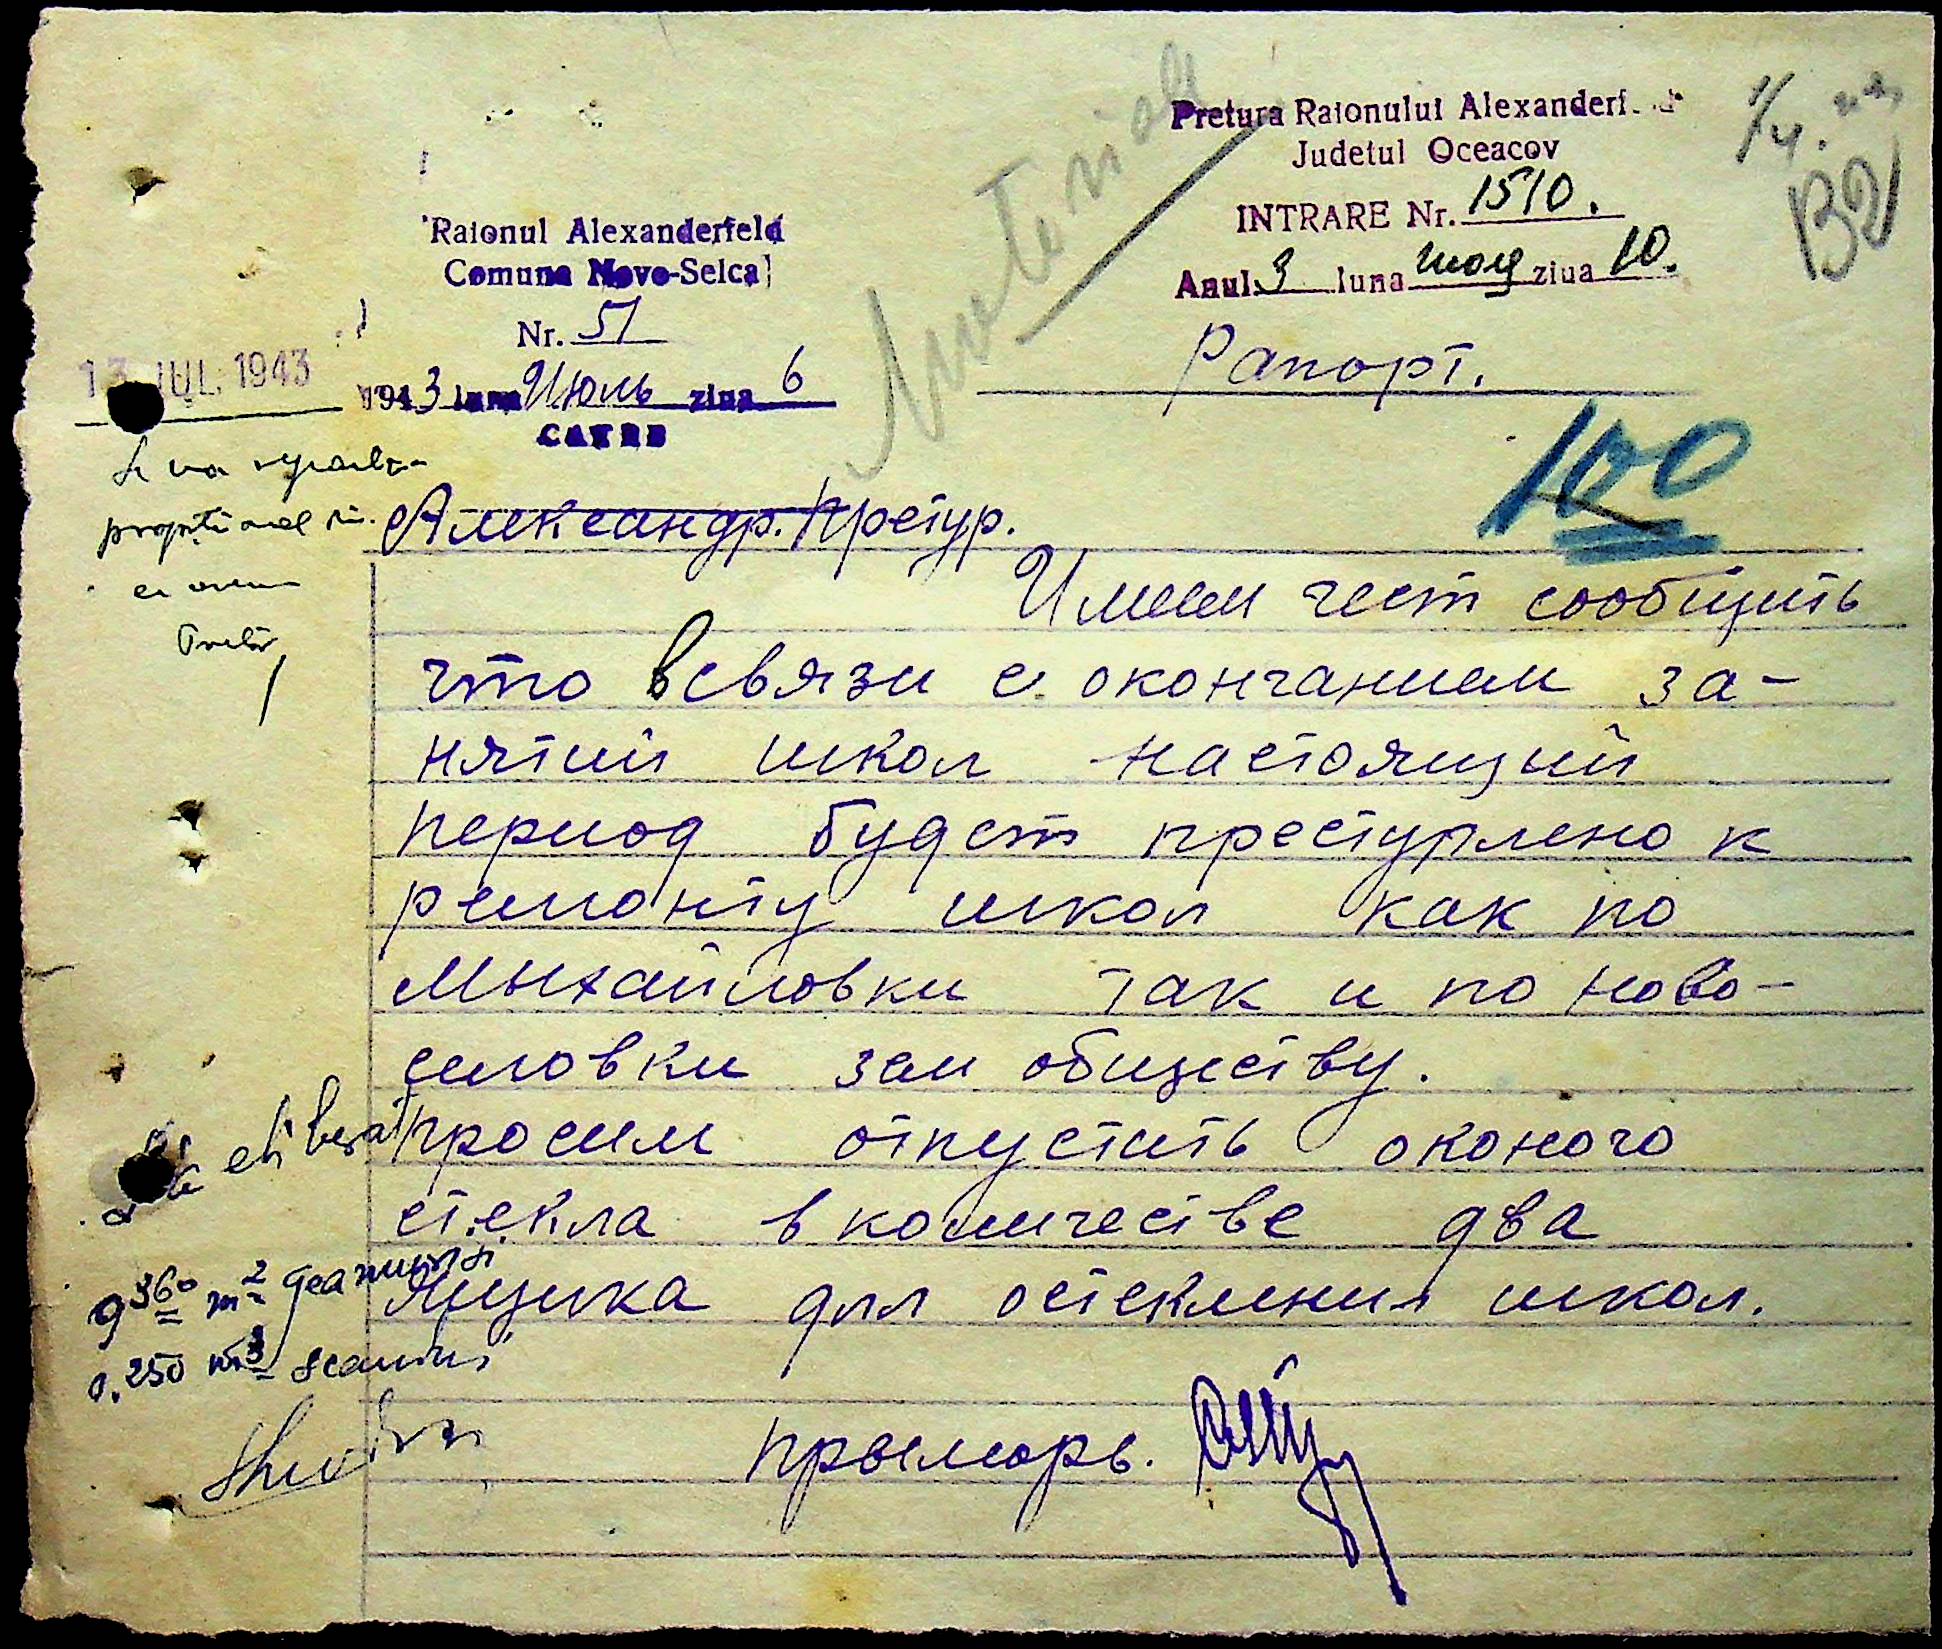 Pretura Raionului Alexanderfeld
Judetul Oceacov
INTRARE Nr. 1510.
Anul 3 luna июл ziua 10.
1/4.
132
Materiale
Raionul Alexanderfeld
Comuna Novo-Selca
Nr. 51
1943 luna Июль ziua 6
CATRE
13 IUL. 1943
Рапорт.
100
Se va repartiza
proporțional
Pretor
Александр. Претур.
Имеем чест сообщить
что всвязи с окончанием за-
нятий школ настоящий
период будет преступлено к
ремонту школ как по
Мыхайловки так и по ново-
селовки зем обществу.
просим отпустить оконого
стекла в количестве два
ящика для остекления школ.
прыморь.
eliberat
9 360 m² geamuri
0.250 m³ scanduri